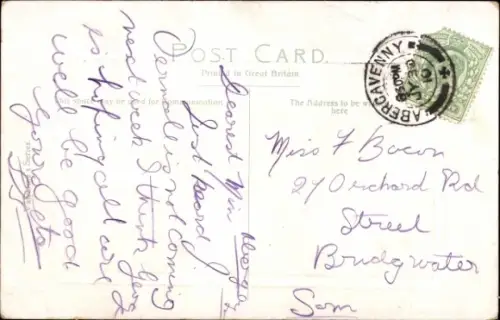 POST CARD.
Printed in Great Britain
This space may be used for communication
The Address to be
here
ABERGAVENNY
Dearest Min
Just heard
Vernale is not coming
next week I think
is hoping all are
well be good
Miss F Bacon
27 Orchard Rd
Street
Bridgwater
Som